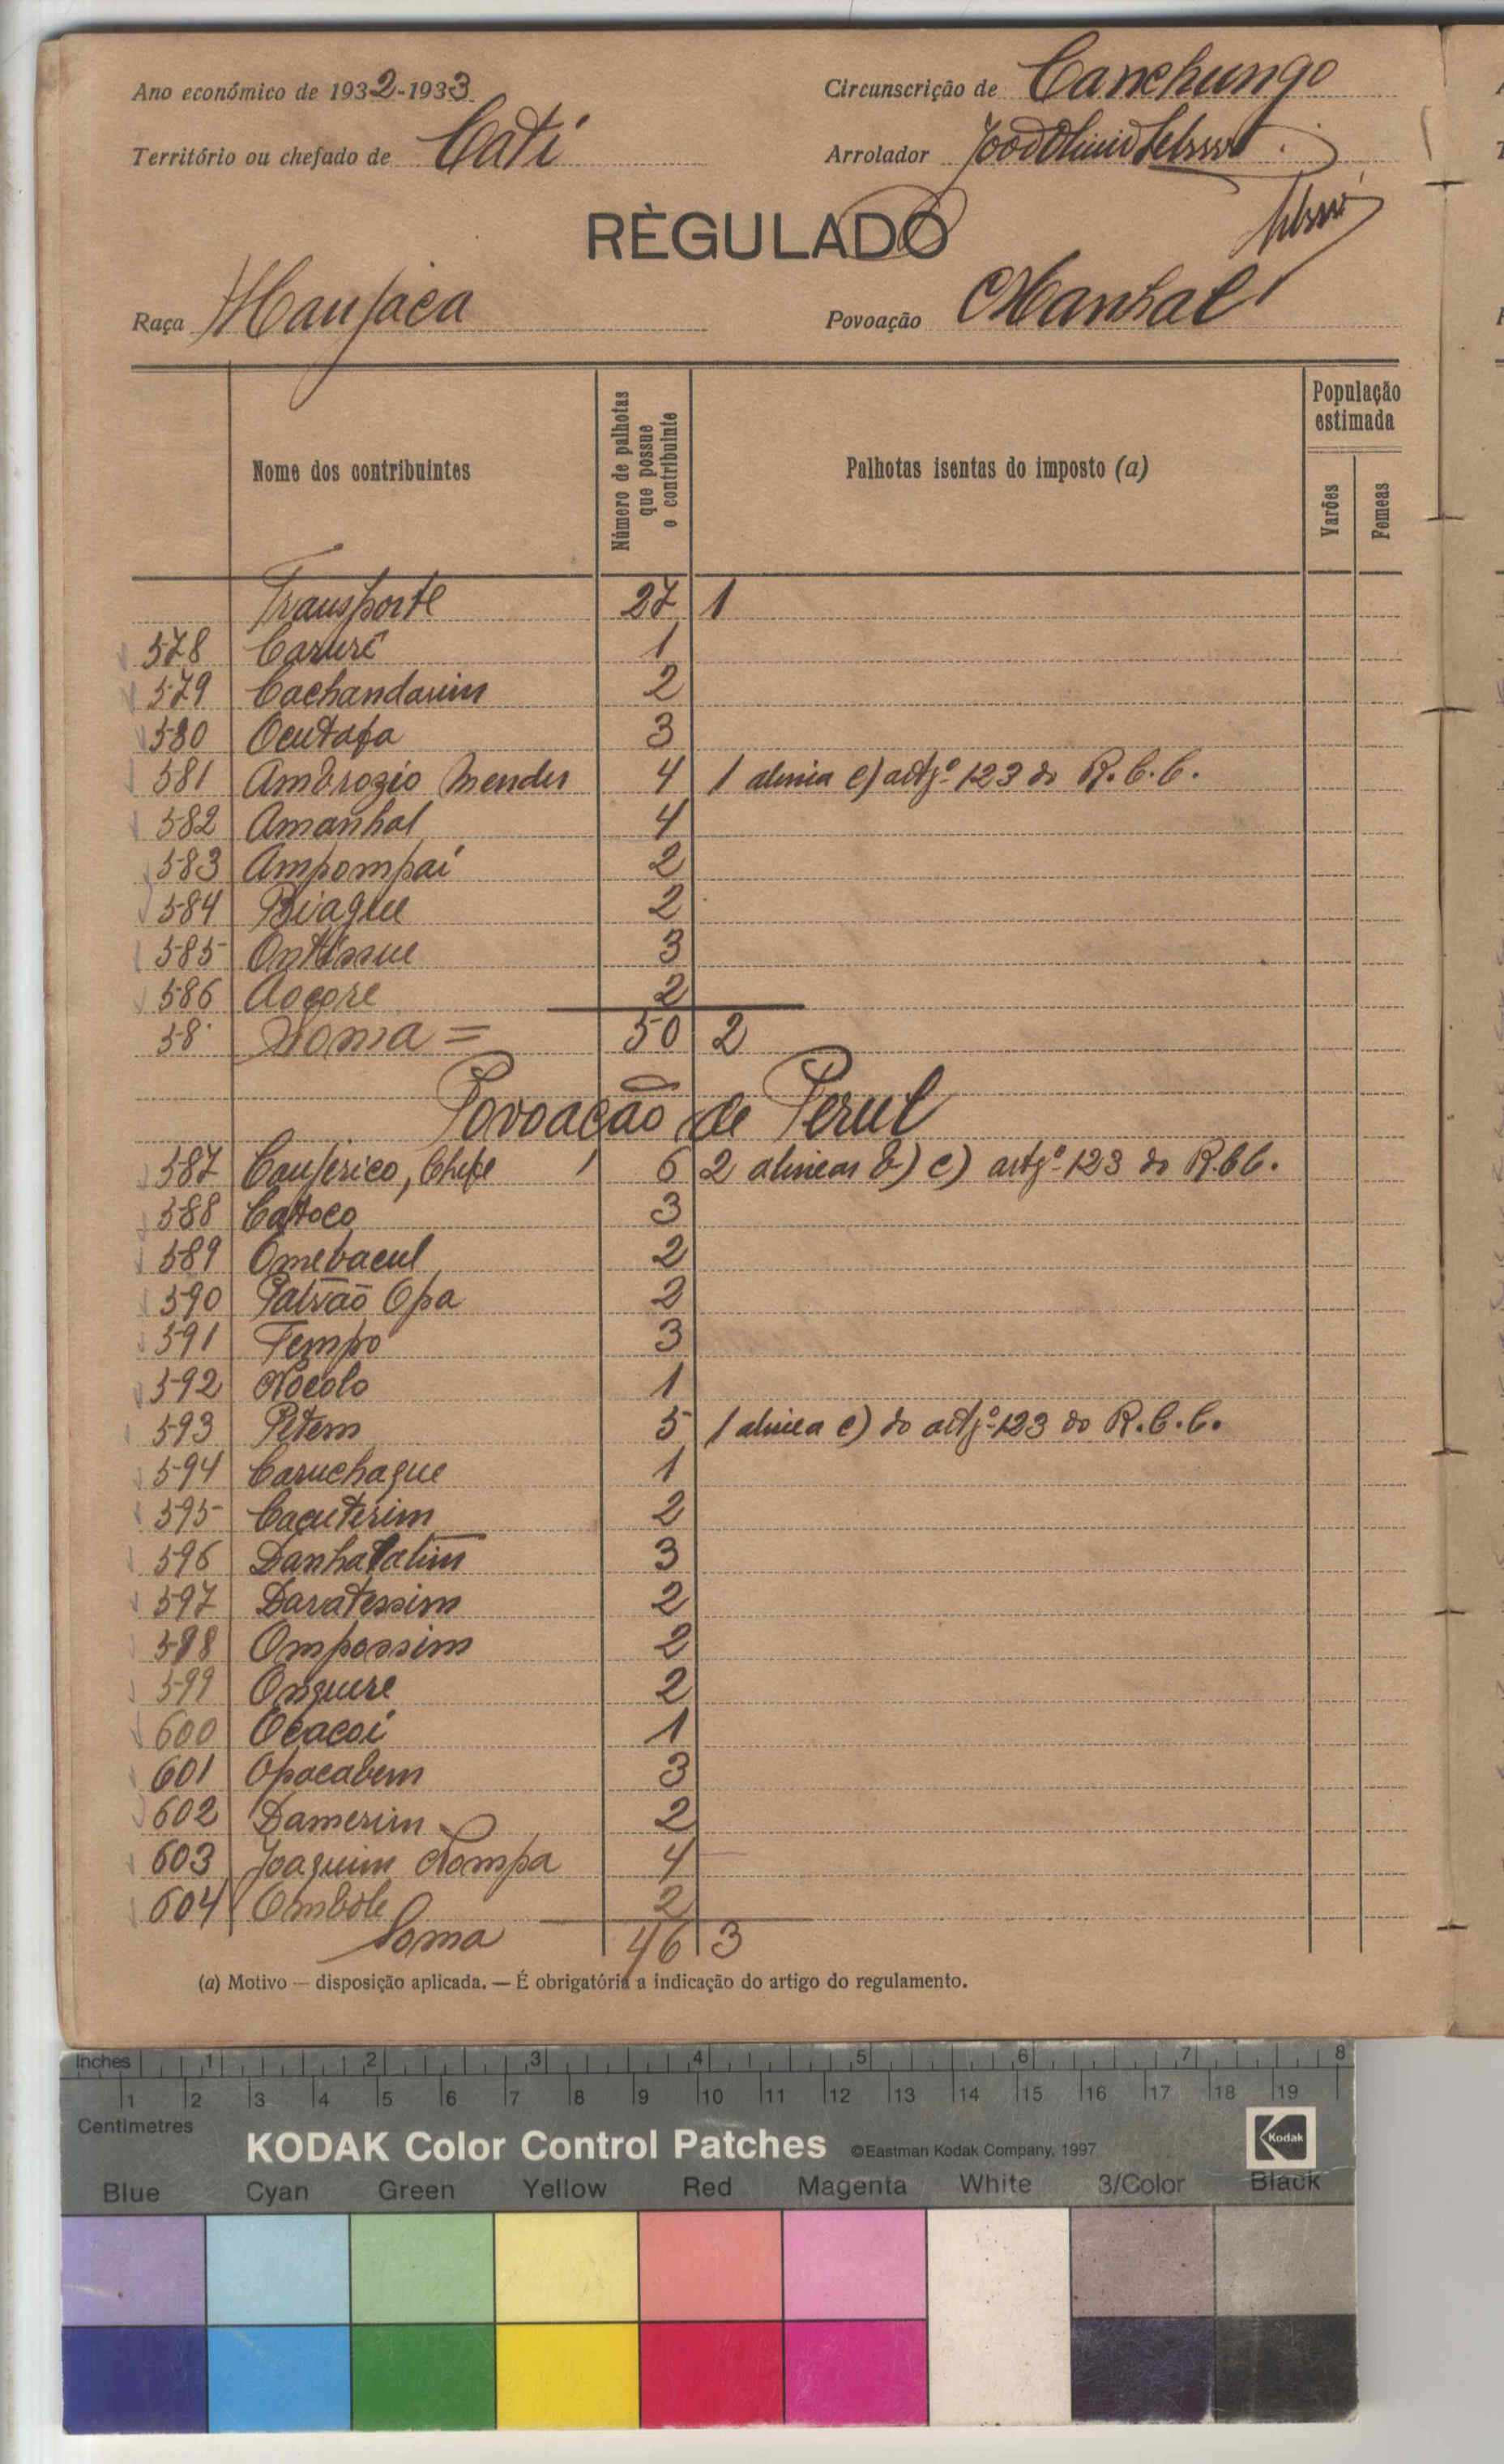 Ano económico de 1932-1933
Circunscrição de Canchungo
Território ou chefado de Cati
Arrolador
RÈGULADO
Raça Manjaca
Povoação Manhal
Nome dos contribuintes
Número de palhotas que possue o contribuinte
Palhotas isentas do imposto (a)
População estimada
Varões
Femeas
Transporte 27 1
578 Caruré 1
579 Cachandarim 2
580 Ocutafa 3
581 Ambrozio Mendes 4 1 alinia e) artgº 123 do R.C.C.
582 Amanhal 4
583 Ampompaí 2
584 Biague 2
585 Ontissue 3
586 Aocore 2
58 Soma = 50 2
Povoação de Perul
587 Canjerico, Chefe 6 2 alineas b) e) artgº 123 do R.C.C.
588 Catoco 3
589 Omebacul 2
590 Patrão Opa 2
591 Tempo 3
592 Nocolo 1
593 Petem 5 1 alinea e) do artgº 123 do R.C.C.
594 Caruchague 1
595 Caçuterim 2
596 Danhalatim 3
597 Daratessim 2
598 Ompossim 2
599 Onguere 2
600 Ocacoi 1
601 Opacabem 3
602 Damerim 2
603 Joaquim Nompa 4
604 Ombole 2
Soma 46 3
(a) Motivo — disposição aplicada. — É obrigatória a indicação do artigo do regulamento.
Inches 1 2 3 4 5 6 7 8
1 2 3 4 5 6 7 8 9 10 11 12 13 14 15 16 17 18 19
Centimetres
KODAK Color Control Patches ©Eastman Kodak Company, 1997 Kodak
Blue Cyan Green Yellow Red Magenta White 3/Color Black